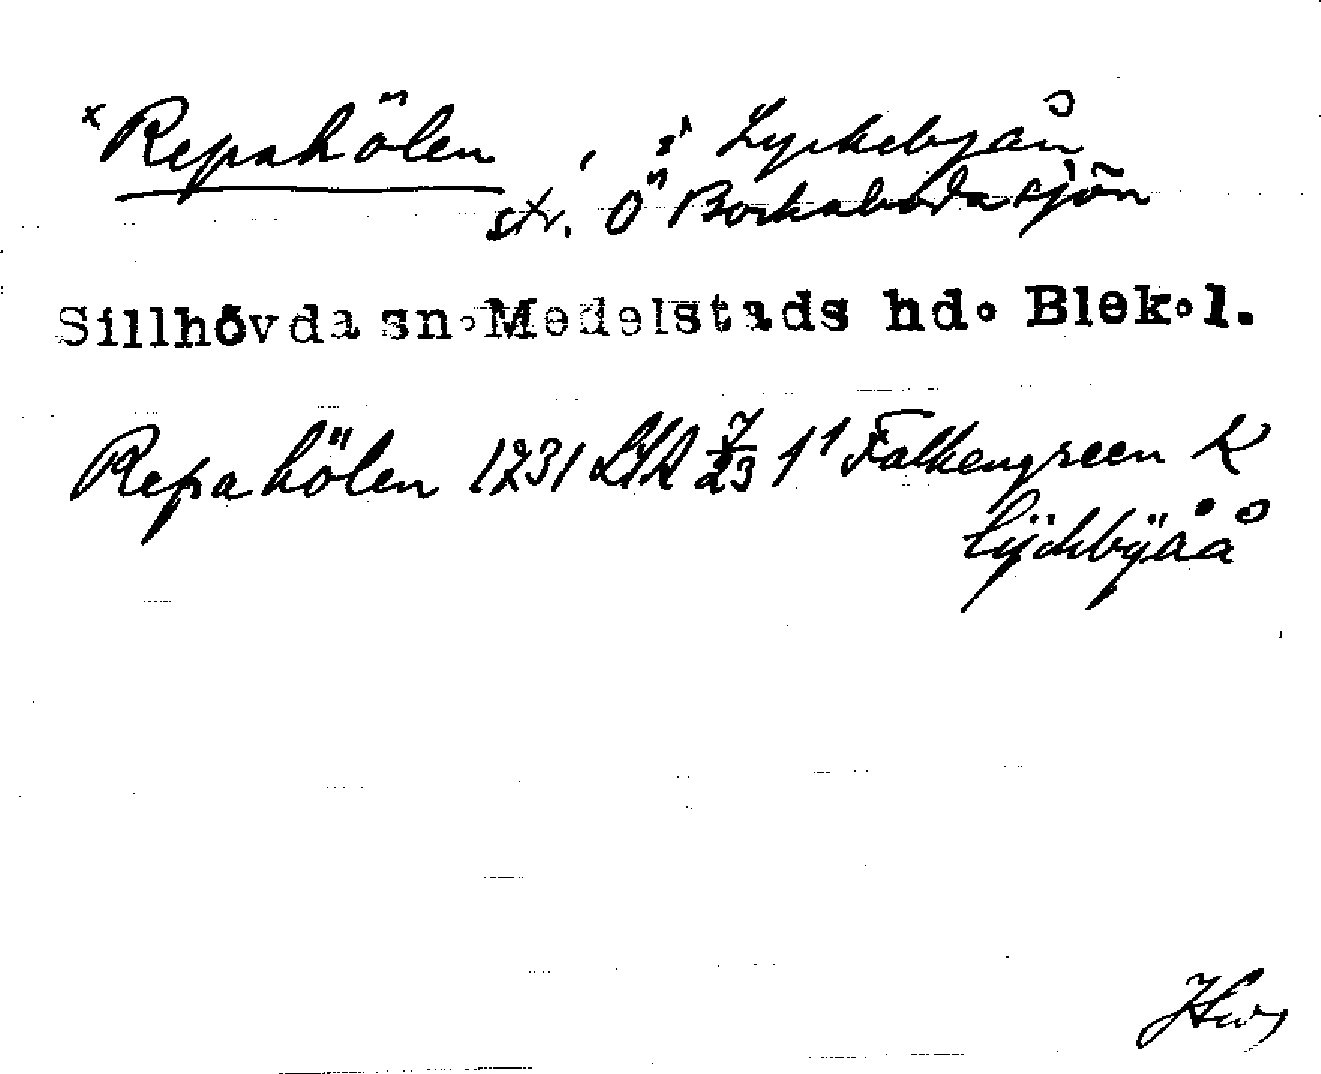 × Repahölen, i Lyckebyån
str. Ö Borkabodasjön
Sillhövda sn. Medelstads hd. Blek. l.
Repahölen 1231 7/23 Falkengreen K
Lÿckbÿåå